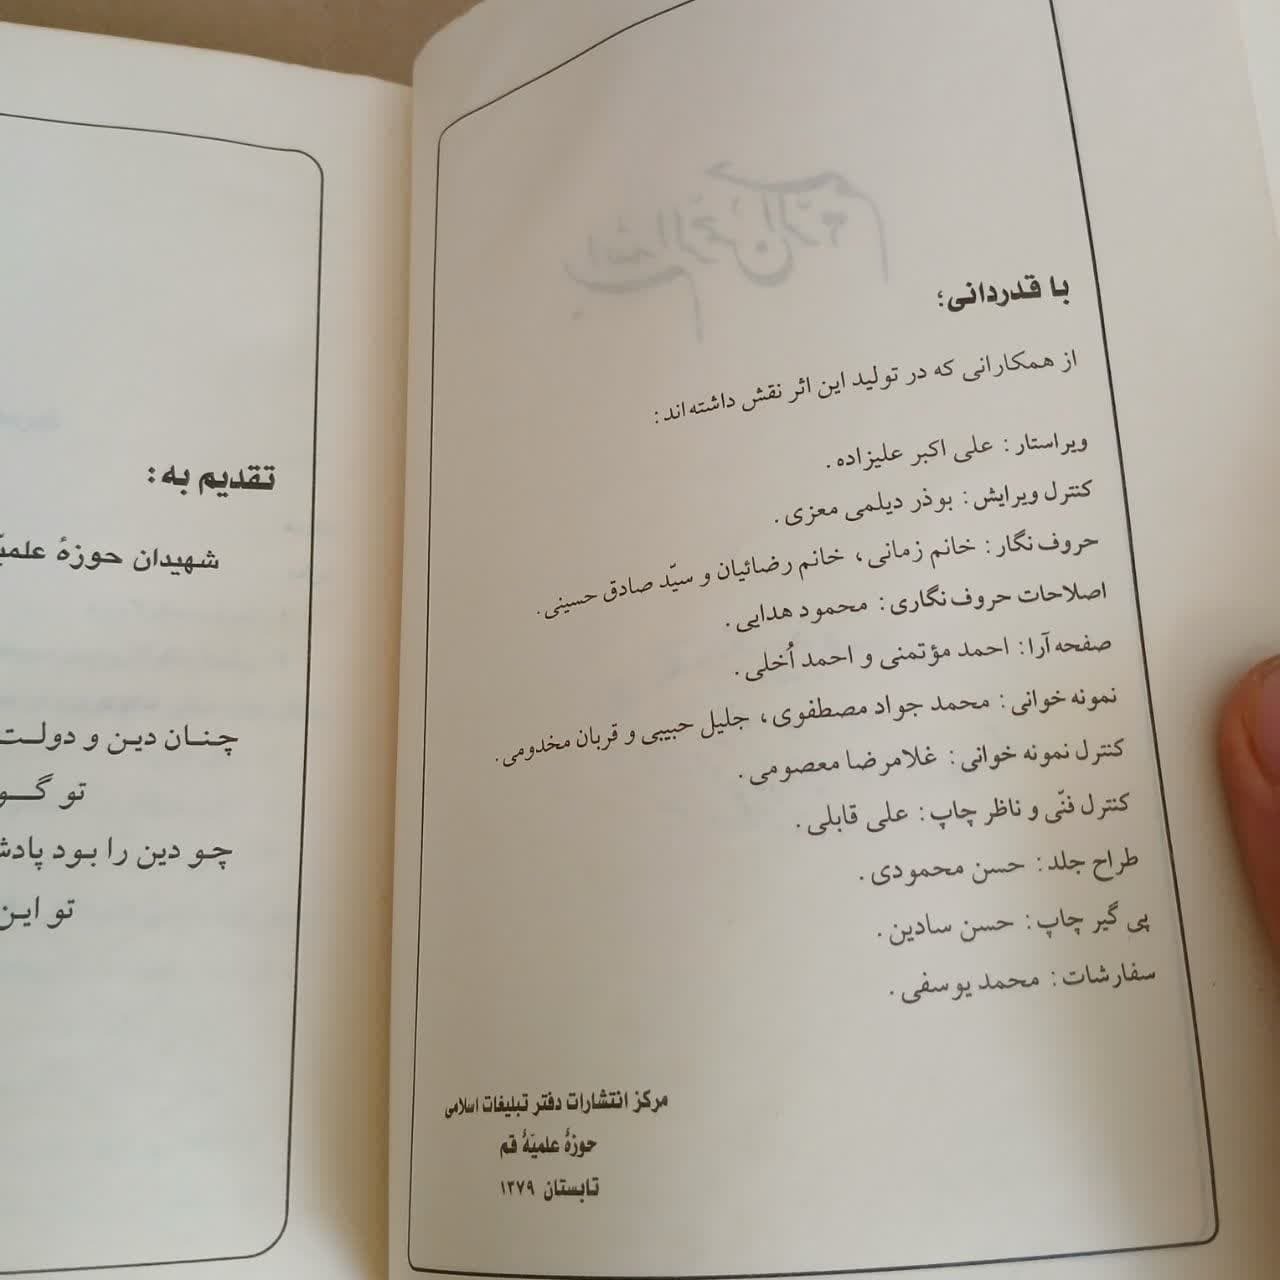 با قدردانی؛
از همکارانی که در تولید این اثر نقش داشته‌اند:
ویراستار: علی اکبر علیزاده.
کنترل ویرایش: بوذر دیلمی معزی.
حروف‌نگار: خانم زمانی، خانم رضائیان و سیّد صادق حسینی.
اصلاحات حروف‌نگاری: محمود هدایی.
صفحه‌آرا: احمد مؤتمنی و احمد اُخلی.
نمونه‌خوانی: محمد جواد مصطفوی، جلیل حبیبی و قربان مخدومی.
کنترل نمونه خوانی: غلامرضا معصومی.
کنترل فنّی و ناظر چاپ: علی قابلی.
طراح جلد: حسن محمودی.
پی گیر چاپ: حسن سادین.
سفارشات: محمد یوسفی.
مرکز انتشارات دفتر تبلیغات اسلامی
حوزهٔ علمیّهٔ قم
تابستان ۱۳۷۹
تقدیم به:
شهیدان حوزهٔ
چنان دین و دولت
تو
چو دین را بود
تو این